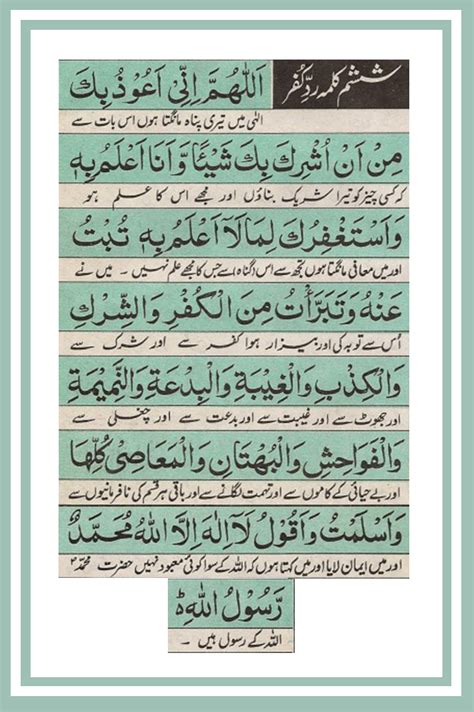 ششم کلمہ ردِّ کفر
اَللّٰهُمَّ اِنِّیْ اَعُوْذُ بِكَ
الٰہی میں تیری پناہ مانگتا ہوں اس بات سے
مِنْ اَنْ اُشْرِكَ بِكَ شَيْئًا وَّاَنَا اَعْلَمُ بِهٖ
کہ کسی چیز کو تیرا شریک بناؤں اور مجھے اس کا علم ہو
وَاَسْتَغْفِرُكَ لِمَا لَآ اَعْلَمُ بِهٖ تُبْتُ
اور میں معافی مانگتا ہوں تجھ سے اس (گناہ) سے جس کا مجھے علم نہیں ۔ میں نے
عَنْهُ وَتَبَرَّأْتُ مِنَ الْكُفْرِ وَالشِّرْكِ
اُس سے توبہ کی اور بیزار ہوا کفر سے اور شرک سے
وَالْكِذْبِ وَالْغِيْبَةِ وَالْبِدْعَةِ وَالنَّمِيْمَةِ
اور جھوٹ سے اور غیبت سے اور بدعت سے اور چغلی سے
وَالْفَوَاحِشِ وَالْبُهْتَانِ وَالْمَعَاصِیْ كُلِّهَا
اور بے حیائی کے کاموں سے اور تہمت لگانے سے اور باقی ہر قسم کی نافرمانیوں سے
وَاَسْلَمْتُ وَاَقُوْلُ لَآ اِلٰهَ اِلَّا اللّٰهُ مُحَمَّدٌ
اور میں ایمان لایا اور میں کہتا ہوں کہ اللہ کے سوا کوئی معبود نہیں حضرت محمدؐ
رَّسُوْلُ اللّٰهِ ؕ
اللہ کے رسول ہیں ۔